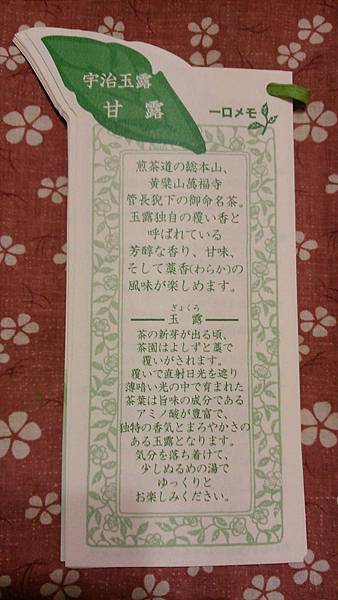 宇治玉露
甘露
一口メモ
煎茶道の総本山、
黄檗山萬福寺
管長猊下の御命名茶。
玉露独自の覆い香と
呼ばれている
芳醇な香り、甘味、
そして藁香(わらか)の
風味が楽しめます。
ぎょくろ
玉露
茶の新芽が出る頃、
茶園はよしずと藁で
覆いがされます。
覆いで直射日光を遮り
薄暗い光の中で育まれた
茶葉は旨味の成分である
アミノ酸が豊富で、
独特の香気とまろやかさの
ある玉露となります。
気分を落ち着けて、
少しぬるめの湯で
ゆっくりと
お楽しみください。